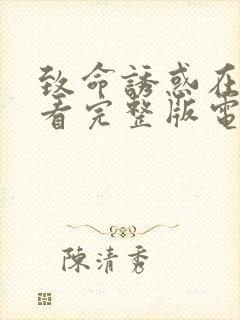 致命誘惑在
看完整版電
陳清秀